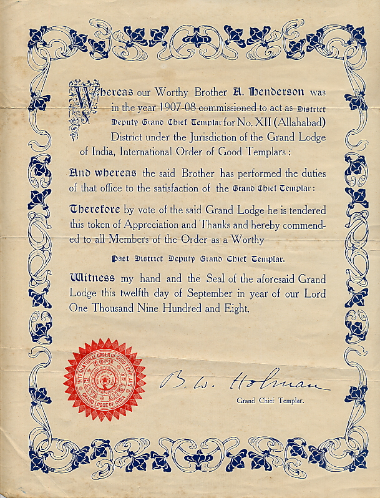 Whereas our Worthy Brother A. Henderson was
in the year 1907-08 commissioned to act as District
Deputy Grand Chief Templar for No. XII (Allahabad)
District under the Jurisdiction of the Grand Lodge
of India, International Order of Good Templars:
And whereas the said Brother has performed the duties
of that office to the satisfaction of the Grand Chief Templar:
Therefore by vote of the said Grand Lodge he is tendered
this token of Appreciation and Thanks and hereby commend-
ed to all Members of the Order as a Worthy
Past District Deputy Grand Chief Templar.
Witness my hand and the Seal of the aforesaid Grand
Lodge this twelfth day of September in year of our Lord
One Thousand Nine Hundred and Eight.
B. W. Holman
Grand Chief Templar.